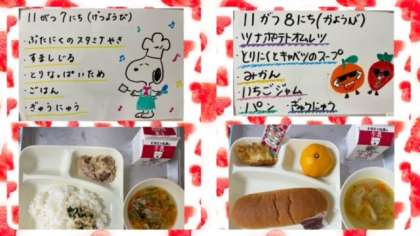 11がつ7にち(げつようび)
・ぶたにくのスタミナやき
・すましじる
・とりなっぱいため
・ごはん
・ぎゅうにゅう
11がつ8にち(かようび)
・ツナポテトオムレツ
・とりにくとキャベツのスープ
・みかん
・いちごジャム
・パン ・ぎゅうにゅう